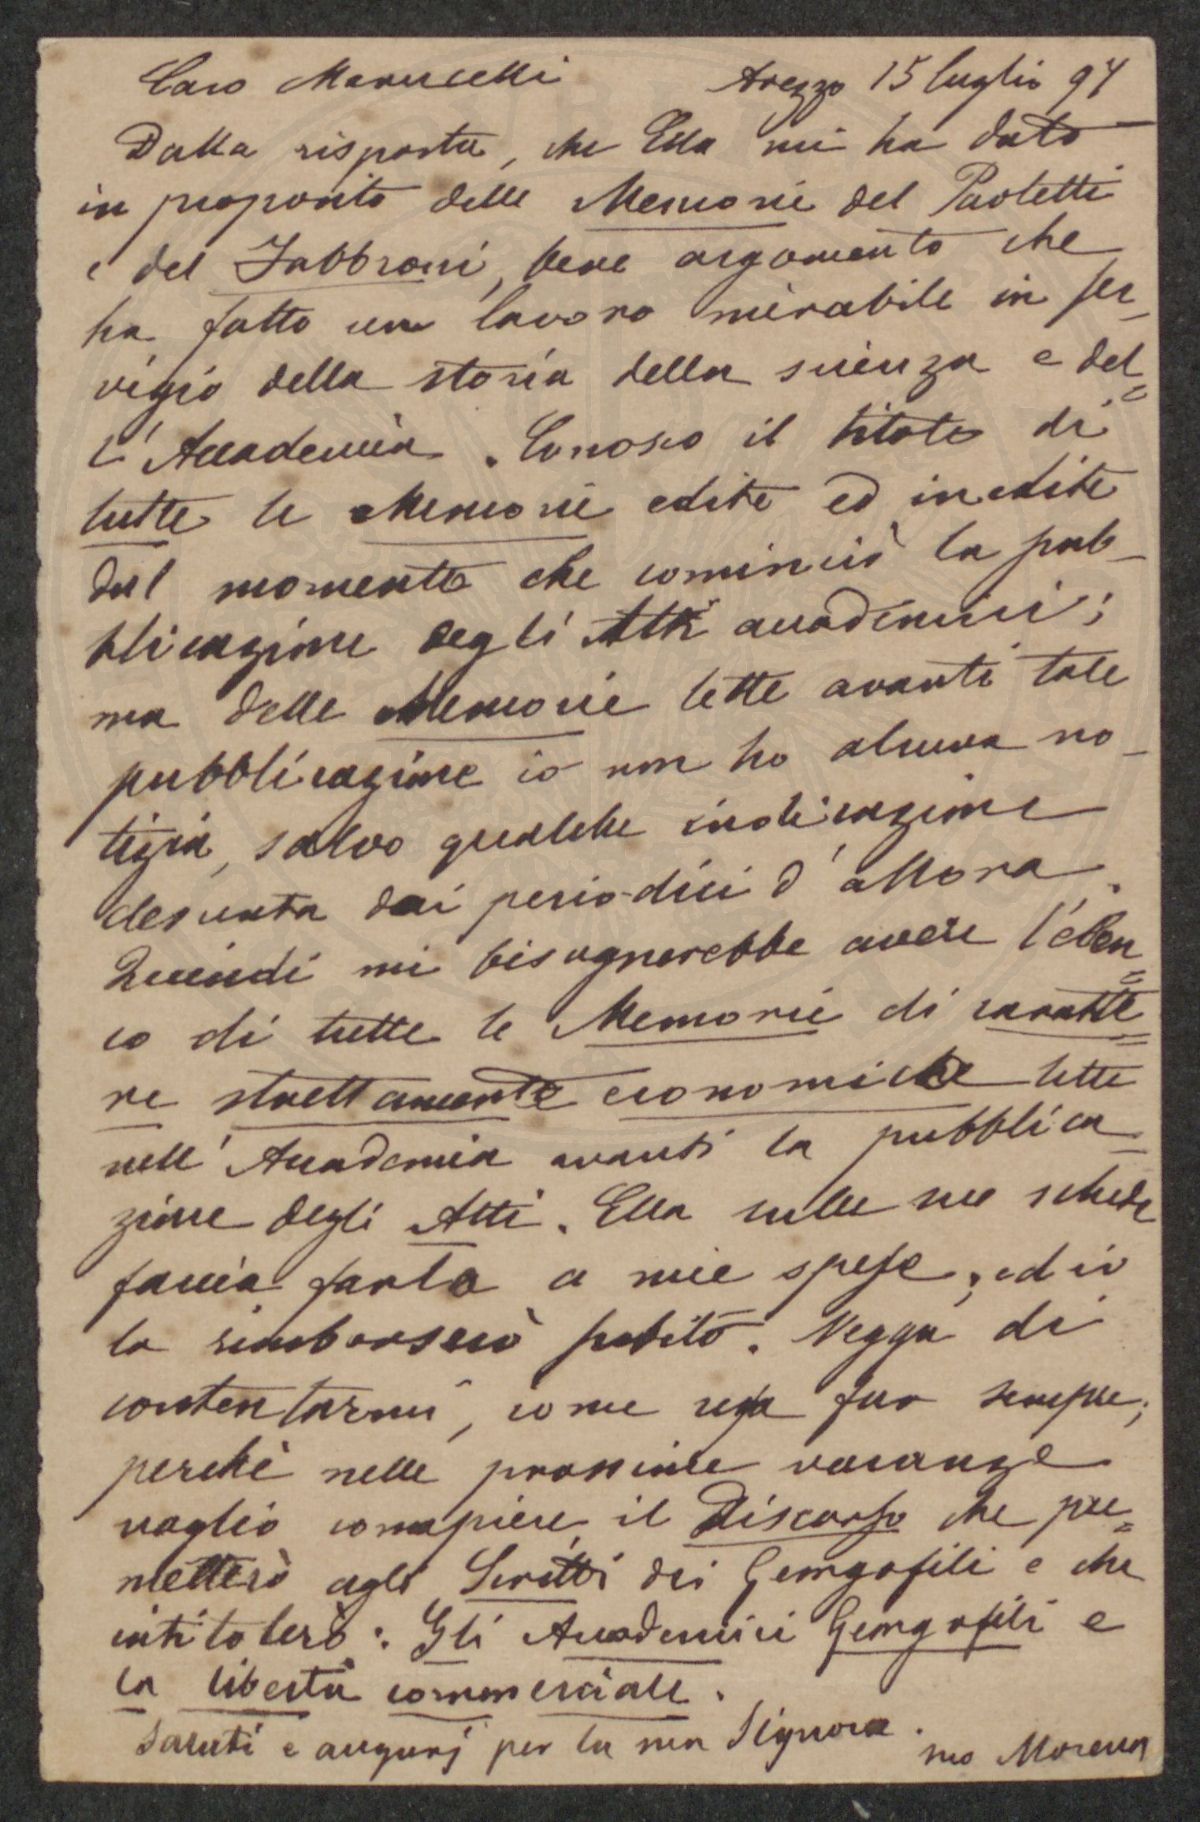 Caro Marucelli Arezzo 15 luglio 94
Dalla risposta, che Ella mi ha dato
in proposito delle Memorie del Paoletti
e del Fabbroni, bene argomento che
ha fatto un lavoro mirabile in ser-
vigio della storia della scienza e del=
l'Accademia. Conosco il titolo di
tutte le Memorie edite ed inedite
dal momento che cominciò la pub-
blicazione degli Atti accademici;
ma delle Memorie lette avanti tale
pubblicazione io non ho alcuna no-
tizia, salvo qualche indicazione
desunta dai periodici d'allora.
Quindi mi bisognerebbe avere l'elen=
co di tutte le Memorie di caratte=
re strettamente economiche lette
nell'Accademia avanti la pubblica-
zione degli Atti. Ella sulle sue schede
faccia farlo a mie spese, ed io
la rimborserò subito. Vegga di
contentarmi, come usa far sempre;
perchè nelle prossime vacanze
voglio compiere il Discorso che pre=
metterò agli Scritti dei Georgofili e che
intitolerò: Gli Accademici Georgofili e
la libertà commerciale.
Saluti e augurj per la sua Signora.
suo Morena